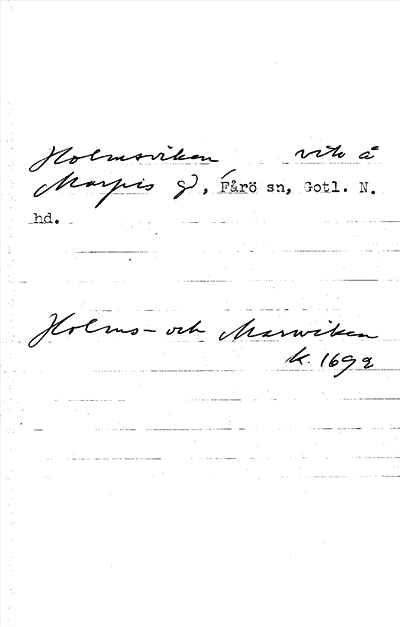 Holmsviken vik å
Marpis g), Fårö sn, Gotl. N.
hd.
Holms- och Marwiken
k. 1692